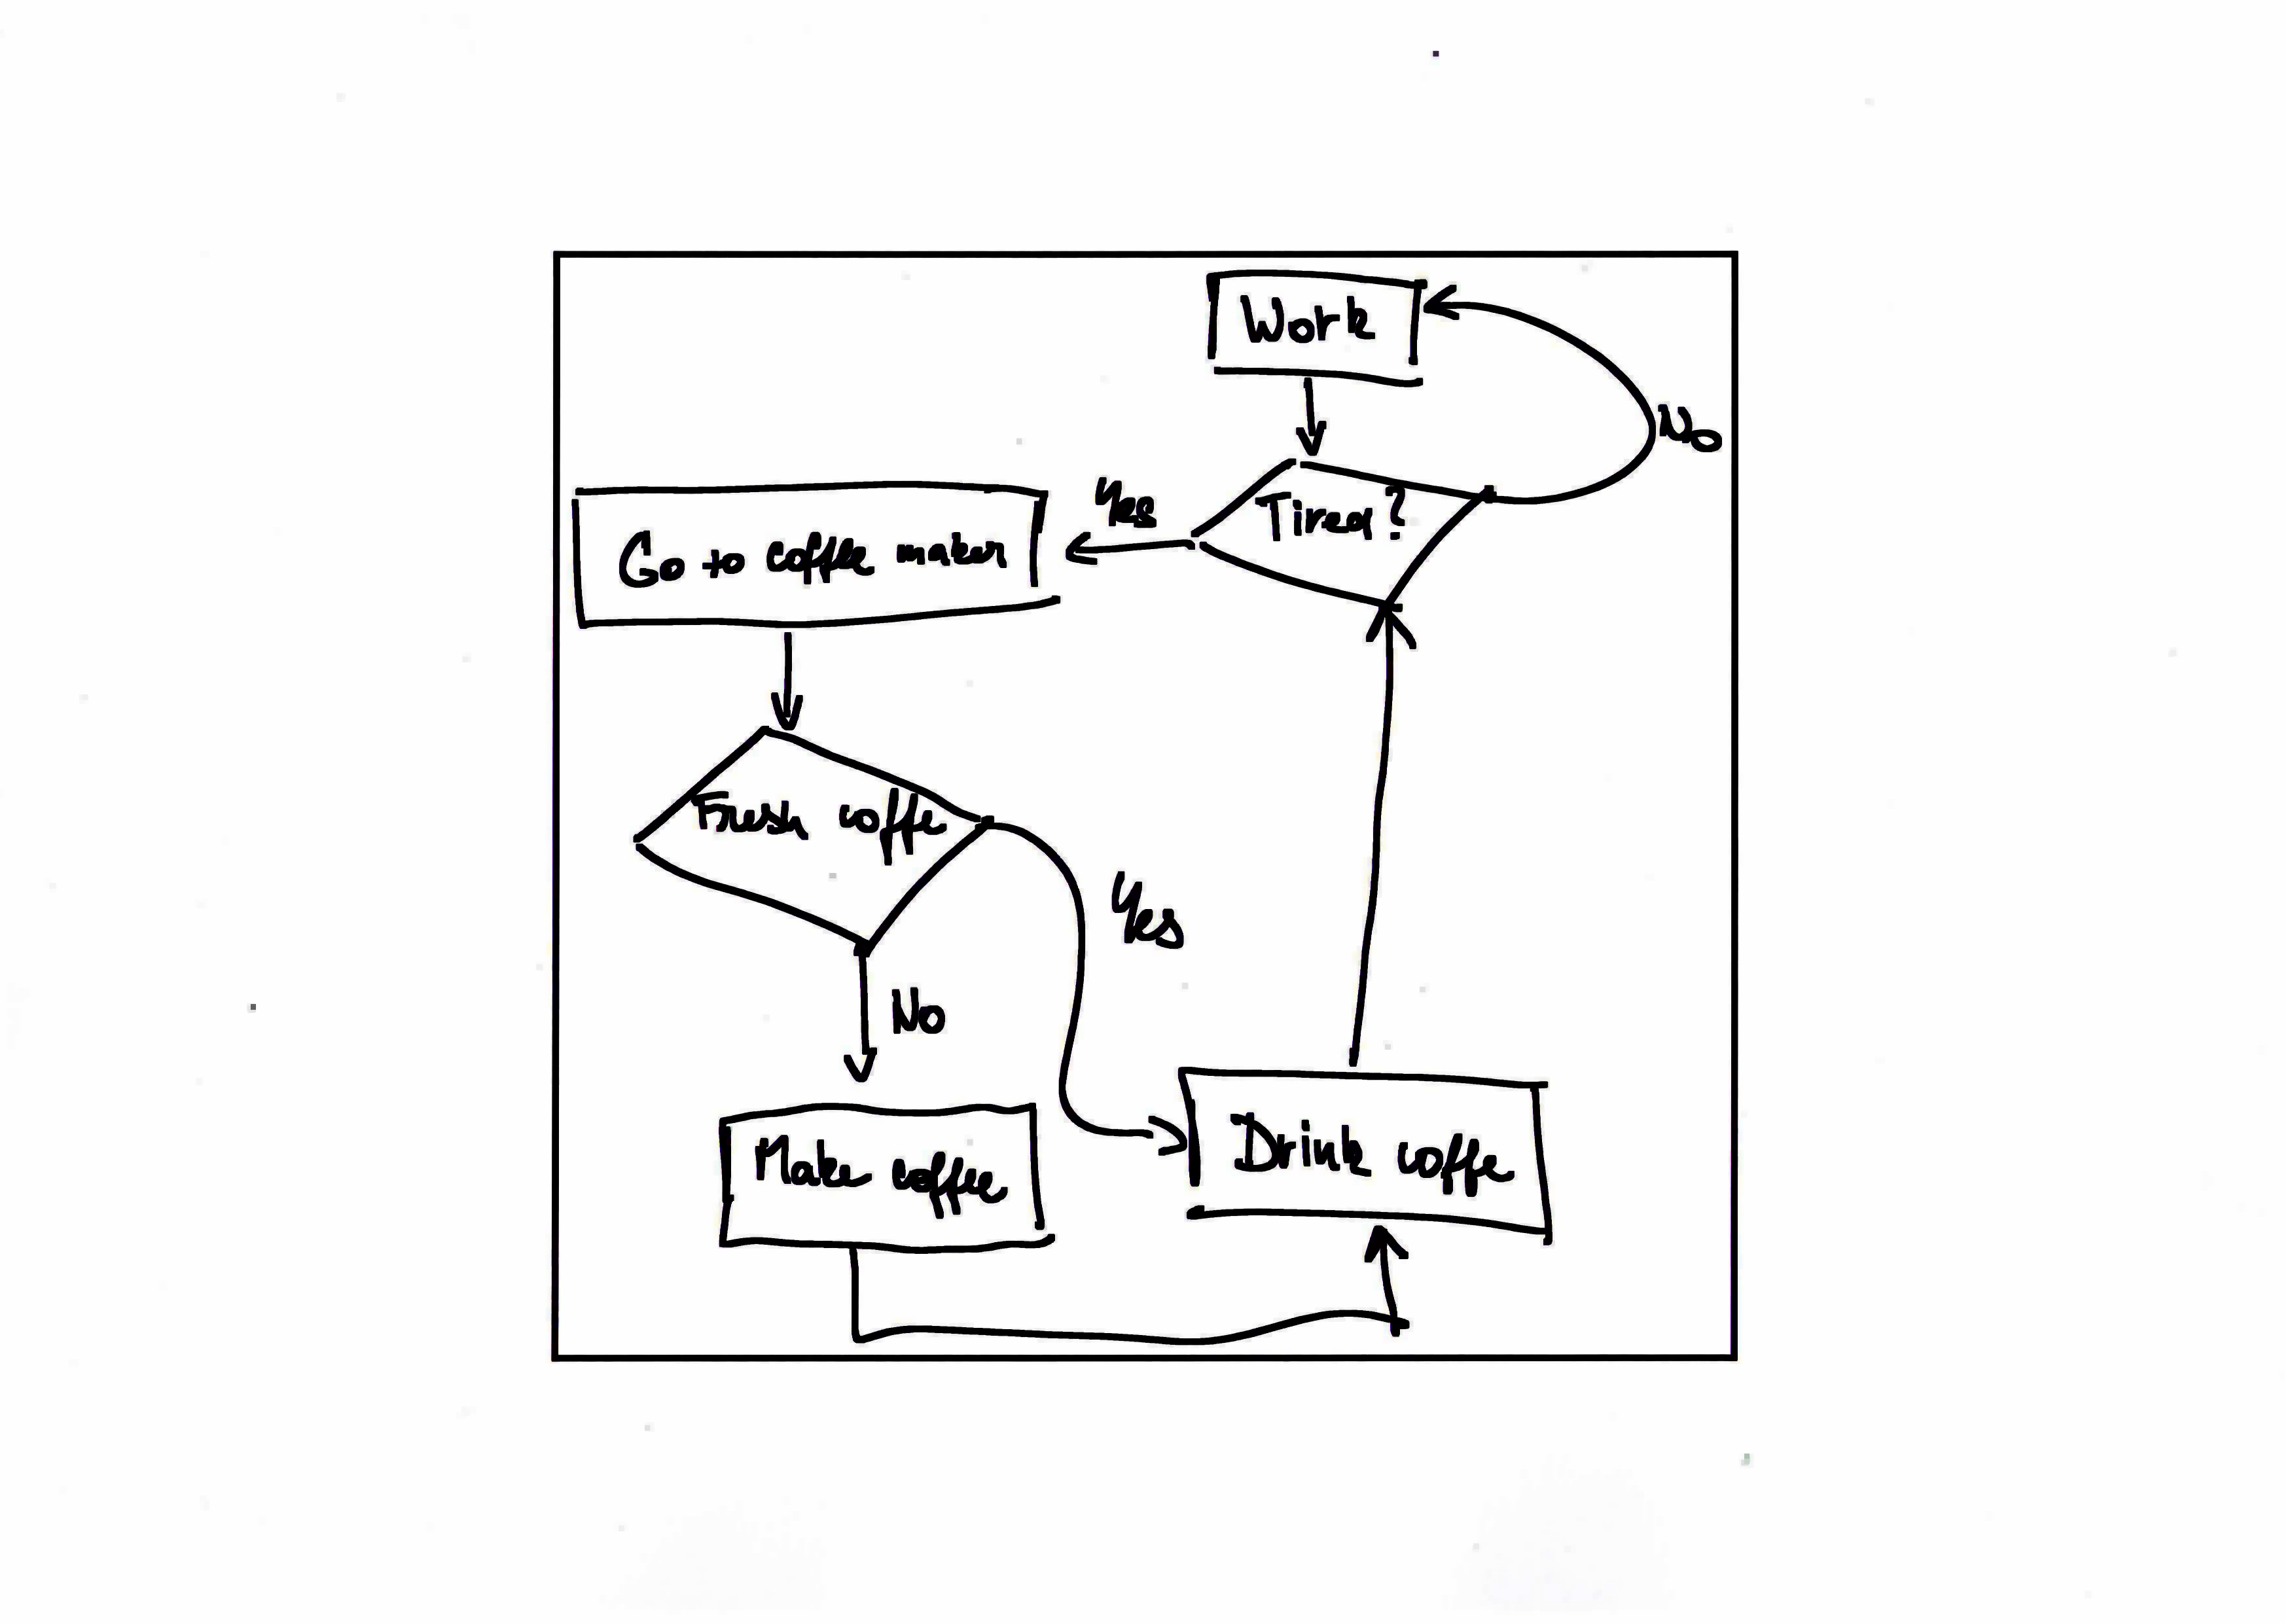 Work
No
Tired?
Yes
Go to coffee maker
Fresh coffe
Yes
No
Make coffee
Drink coffe